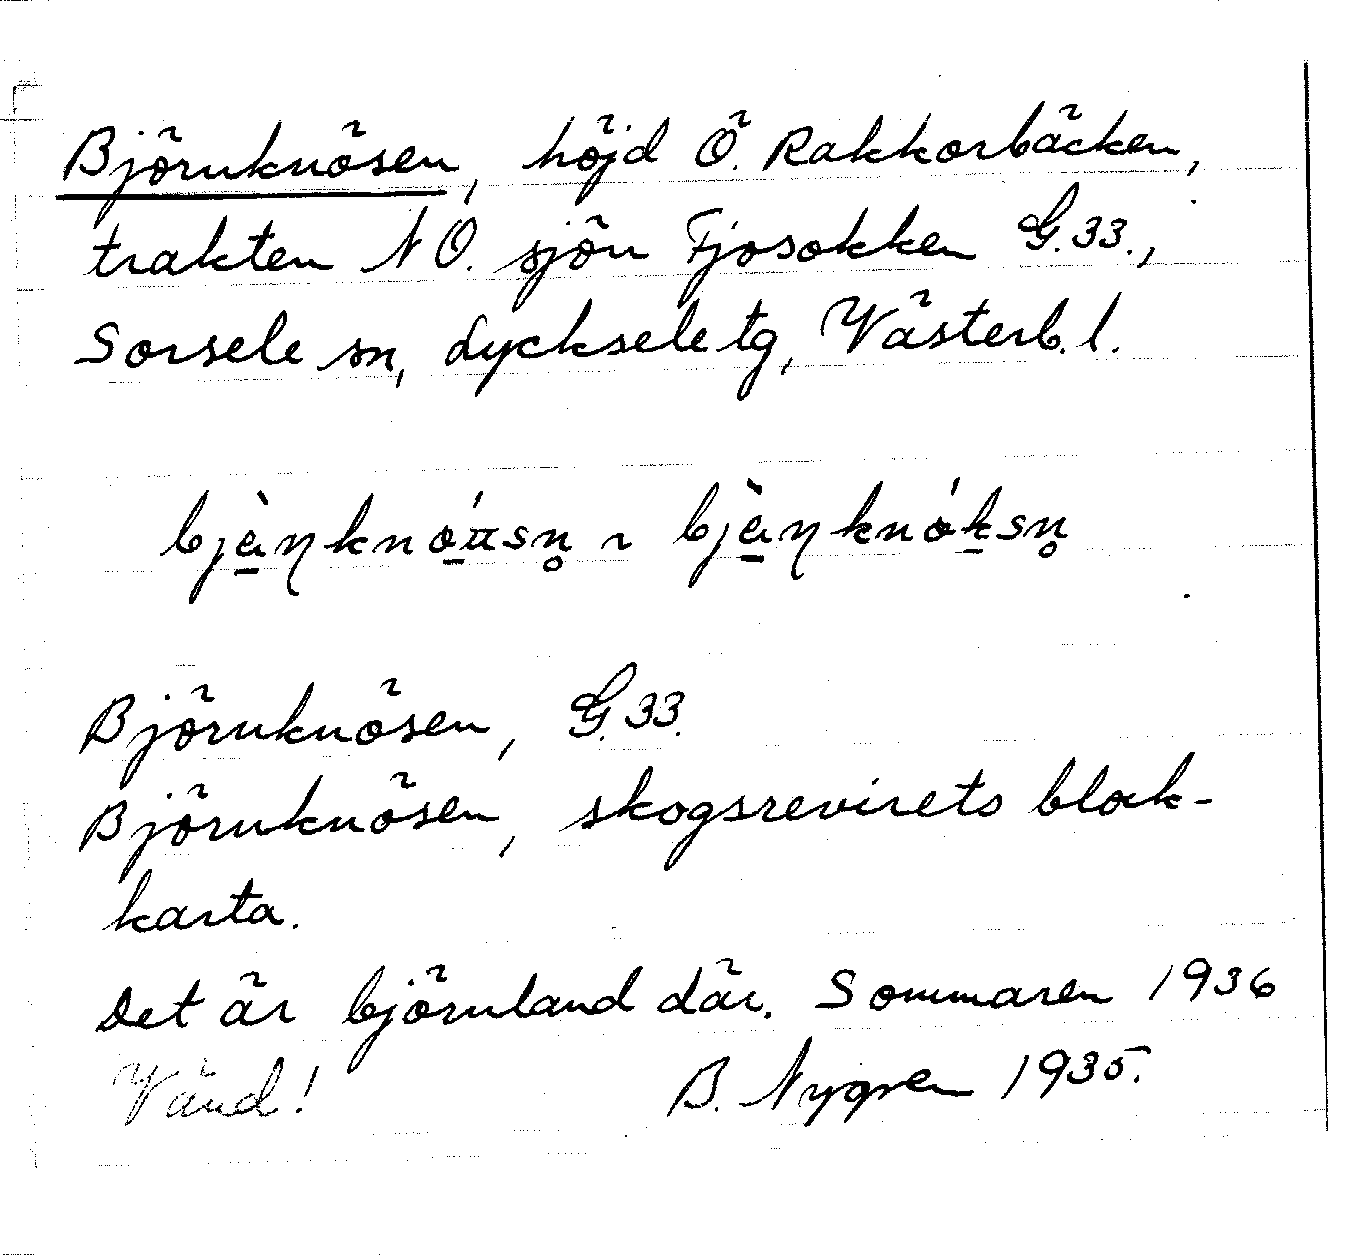 Björnknösen, höjd Ö. Rakkorbäcken,
trakten NO. sjön Fjosokken G.33.,
Sorsele sn, Lycksele tg, Västerb. l.
Björnknösen, G.33.
Björnknösen, skogsrevirets blok-
karta.
Det är björnland där. Sommaren 1936
Vänd! B. Nygren 1935.